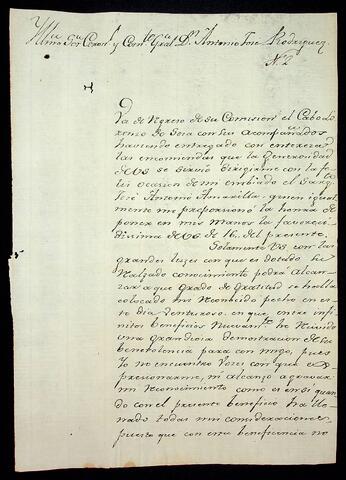 Antonio Jose Rodriguez
N. 2
Va de regreso de su Comision el Cabo Lo-
renzo de Soia con sus acompañados
haviendo entregado con entereza
las encomiendas que la Generosidad
de VS se sirvió dirigirme con la fe-
liz ocasion de mi embiado el Sarg.
José Antonio Amarilla quien igual-
mente me proporcionó la honra de
poner en mis manos la favorece-
dissima de VS de 16. del presente.
Solamente VS con las
grandes luzes con que es dotado su
realzado conocimiento podrá alcan-
zar a que grado de Gratitud se halla
colocado mi reconocido pecho en es-
te dia Venturoso, en que, entre infi-
nitos beneficios nuevam.te he recivido
una grandiosa demostracion de su
benevolencia para con migo, pues
Yo no encuentro Vozes con que ex-
presionarme, ni alcanzo a
mi reconocimiento como es en si quan-
do con el presente beneficio ha lle-
nado todas mis consideraciones,
puesto que con esta beneficencia no